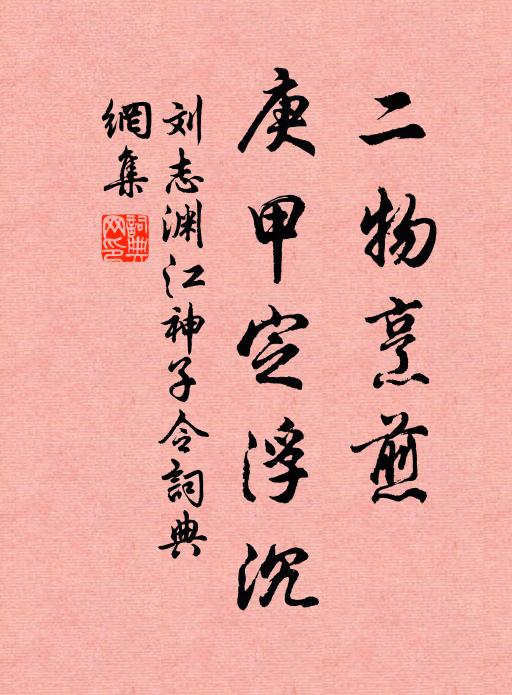 二物烹煎
庚甲定浮沉
刘志渊江神子令詞典
網集
詞典
网印